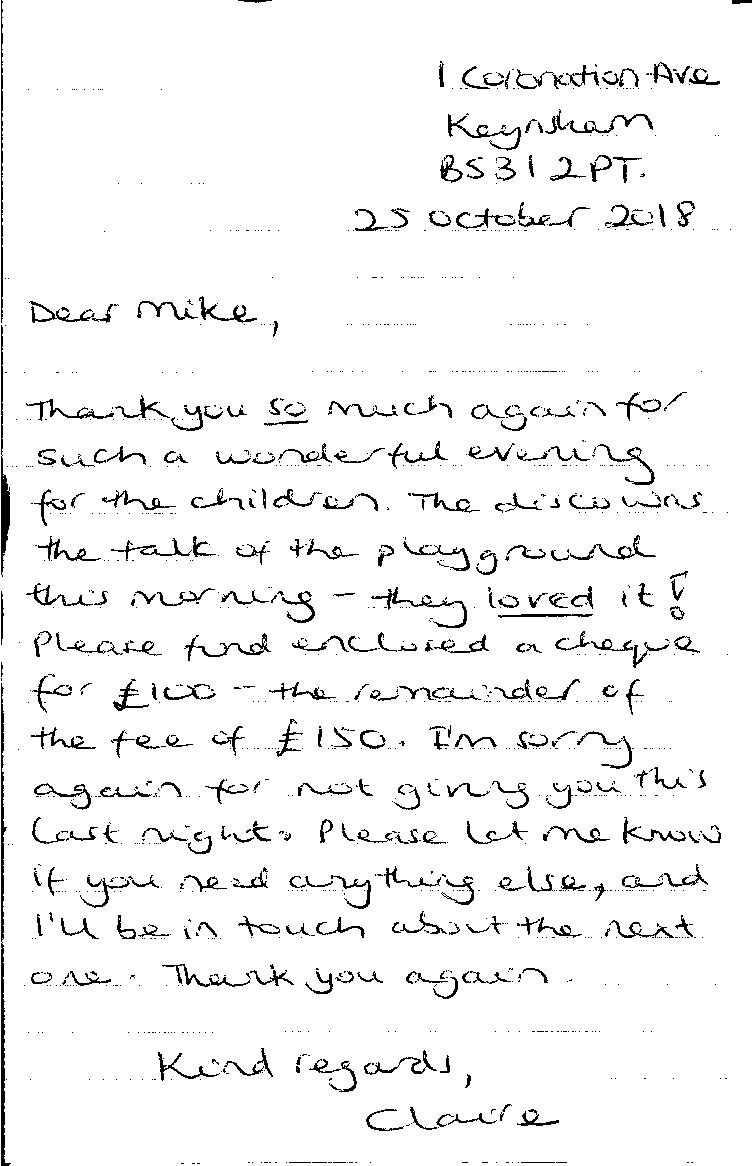 1 Coronation Ave
Keynsham
BS31 2PT.
25 October 2018
Dear Mike,
Thank you so much again for
such a wonderful evening
for the children. The disco was
the talk of the playground
this morning - they loved it!
Please find enclosed a cheque
for £100 - the remainder of
the fee of £150. I'm sorry
again for not giving you this
last night. Please let me know
if you need anything else, and
I'll be in touch about the next
one. Thank you again.
Kind regards,
Claire